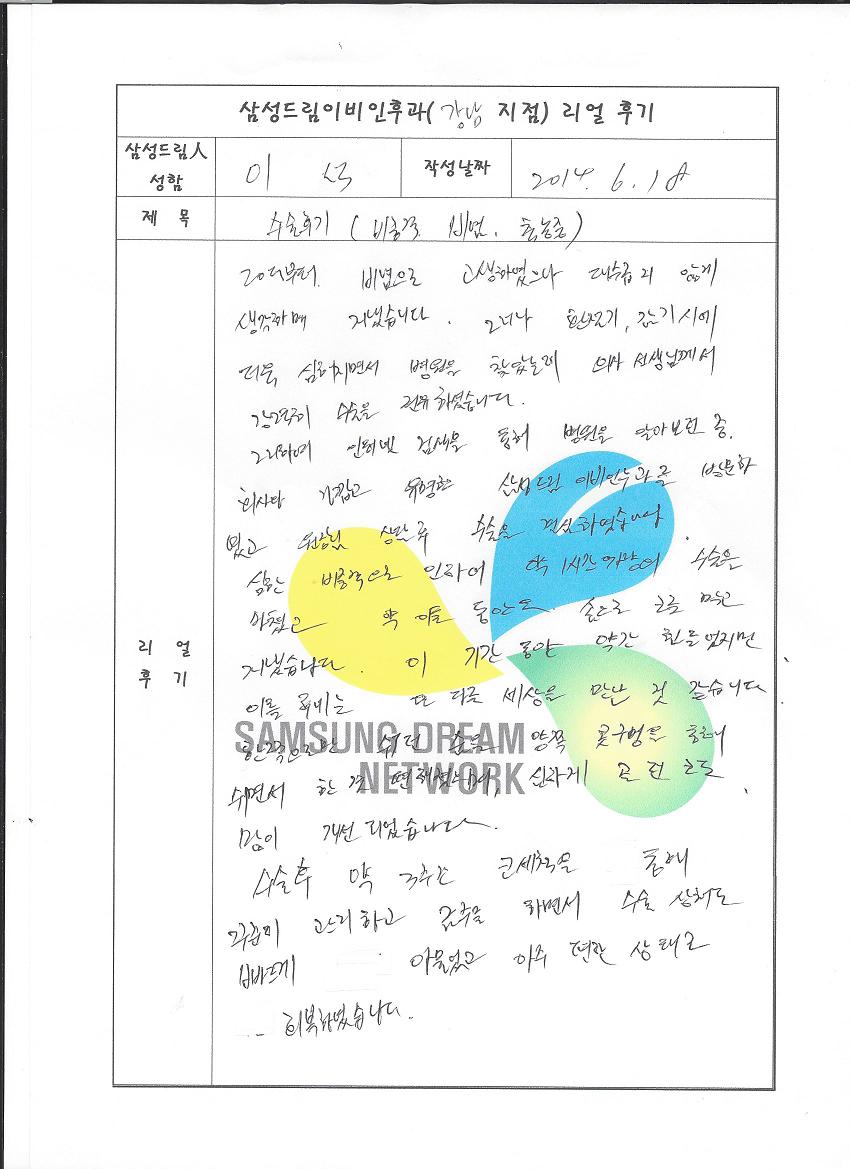 삼성드림이비인후과(강남 지점) 리얼 후기
삼성드림人
성함
이 석
작성날짜
2014. 6. 18
제 목
수술후기 (비중격 비염. 축농증)
리 얼
후 기
20대부터. 비염으로 고생하였으나 대수롭지 않게
생각하며 지냈습니다. 그러나 환절기, 감기시에
더욱 심해지면서 병원을 찾았는데 의사 선생님께서
강력히 수술을 권유하셨습니다.
그리하여 인터넷 검색을 통해 병원을 알아보던 중.
회사랑 가깝고 유명한 삼성드림 이비인후과를 방문하
였고 원장님 상담후 수술을 결심하였습니다
심한 비중격으로 인하여 약 1시간가량의 수술을
마쳤고 약 이틀 동안은 솜으로 코를 막고
지냈습니다. 이 기간 동안 약간 힘들었지만
이틀 후에는 또 다른 세상을 만난 것 같습니다
한쪽으로만 쉬던 숨을 양쪽 콧구멍을 통하여
쉬면서 한결 편해졌으며, 심하게 골던 코도
많이 개선되었습니다.
수술후 약 3주간 코세척을 통해
꾸준히 관리하고 금주를 하면서 수술 상처도
빠르게 아물었고 아주 편한 상태로
회복하였습니다.
SAMSUNG DREAM
NETWORK